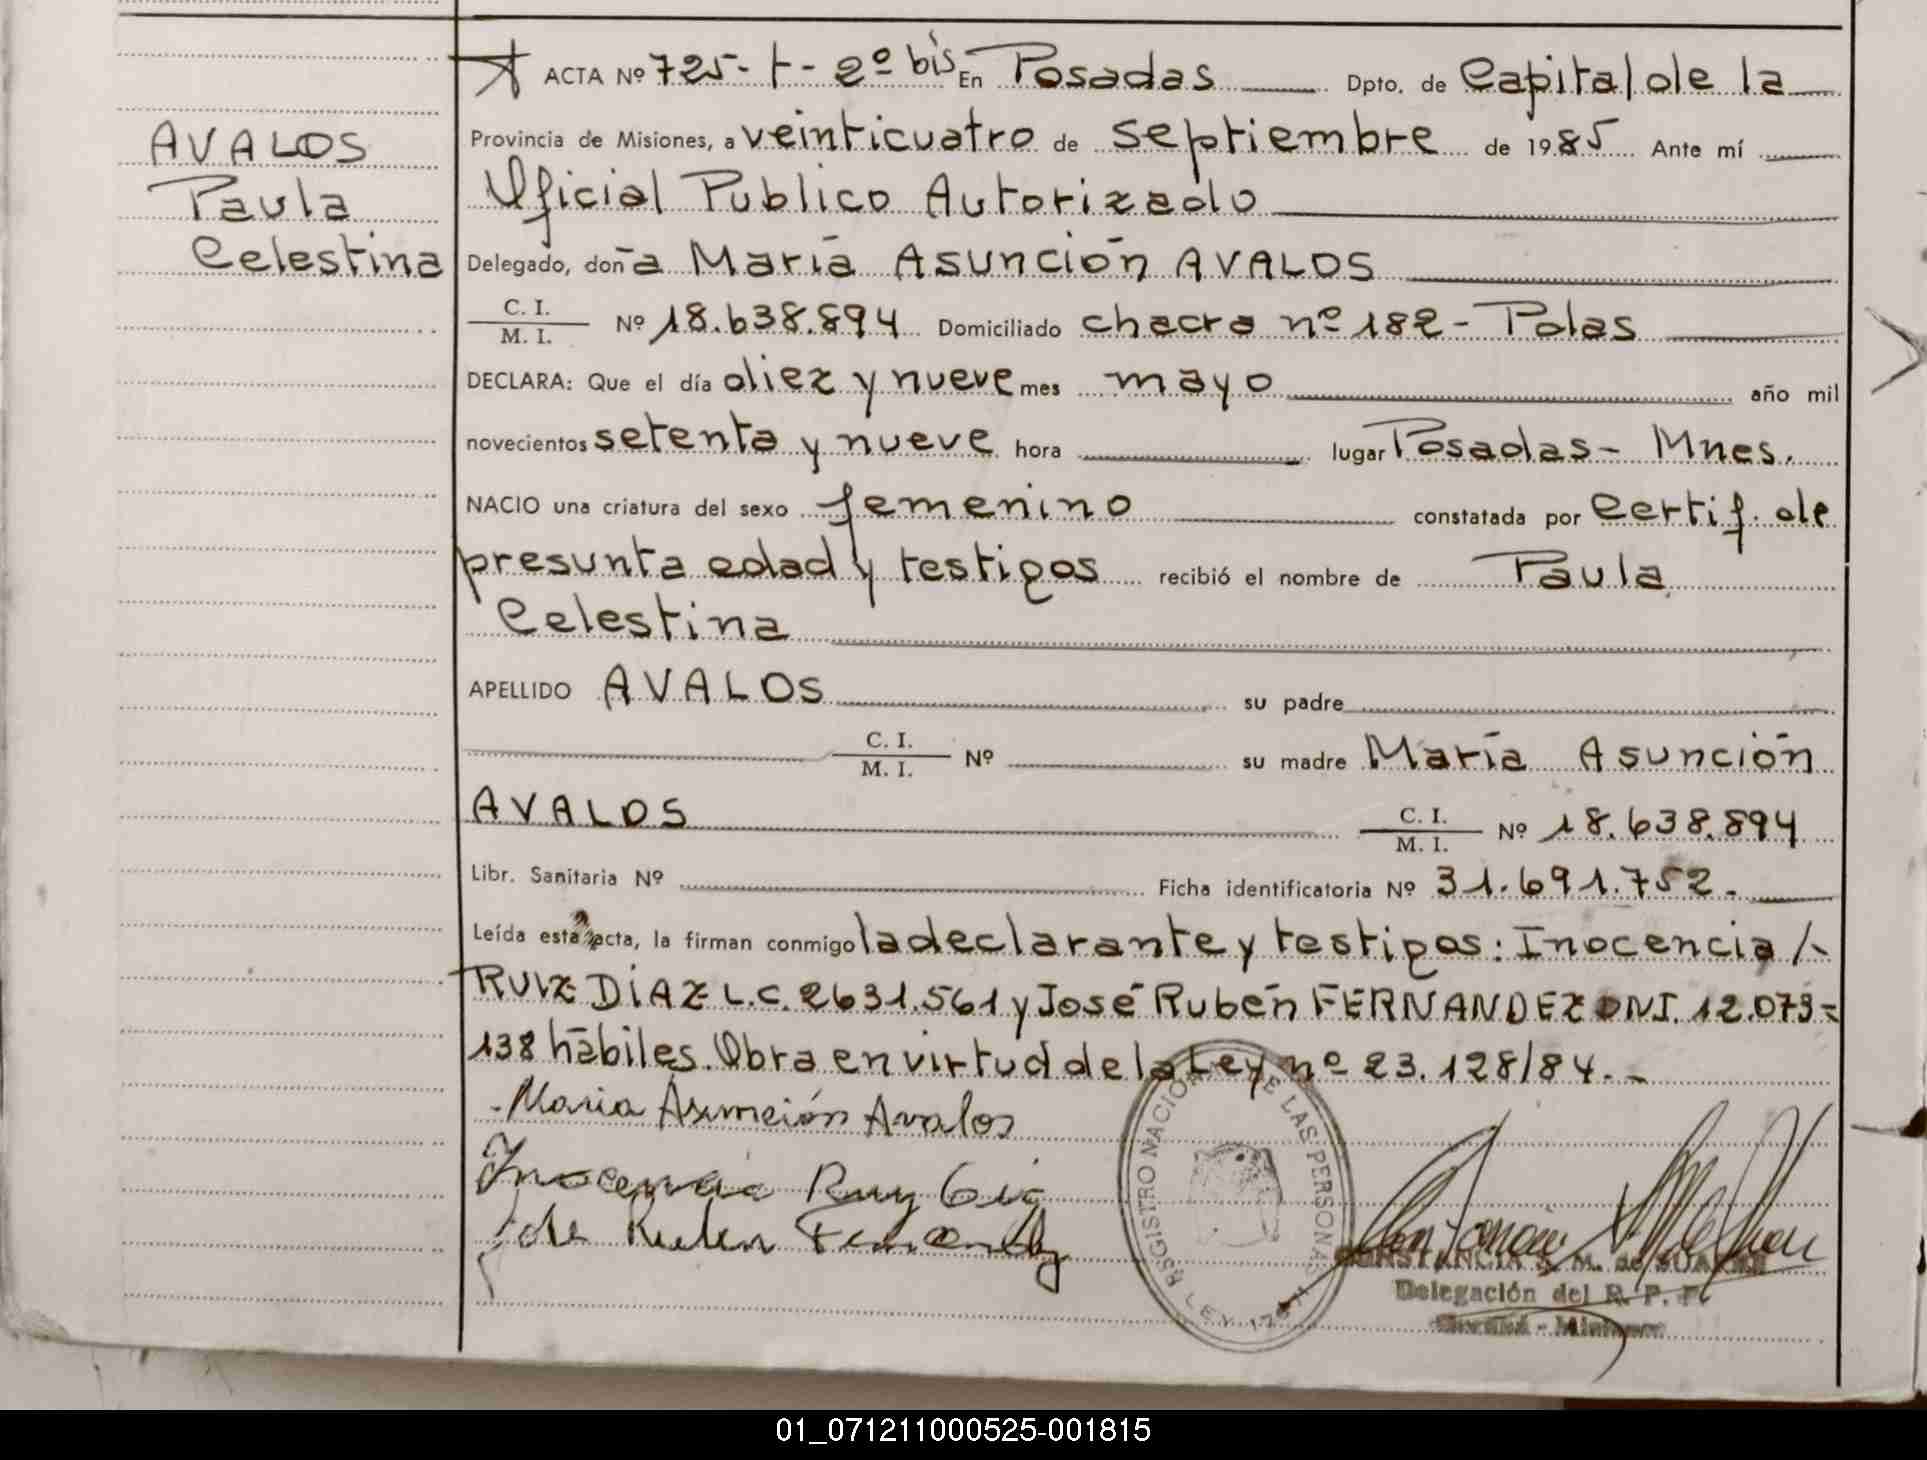 AVALOS
Paula
Celestina
ACTA Nº 725- t - 2º bis En Posadas Dpto. de Capital de la
Provincia de Misiones, a veinticuatro de septiembre de 1985 Ante mí
Oficial Publico Autorizado
Delegado, doña María Asunción AVALOS
C. I.
M. I. Nº 18.638.894 Domiciliado chacra nº 182 - Pdas
DECLARA: Que el día diez y nueve mes mayo año mil
novecientos setenta y nueve hora lugar Posadas - Mnes.
NACIO una criatura del sexo femenino constatada por Certif. de
presunta edad y testigos recibió el nombre de Paula
Celestina
APELLIDO AVALOS su padre
C. I.
M. I. Nº su madre María Asunción
AVALOS C. I.
M. I. Nº 18.638.894
Libr. Sanitaria Nº Ficha identificatoria Nº 31.691.752.-
Leída esta acta, la firman conmigo la declarante y testigos: Inocencia /-
RUIZ DÍAZ L.C. 2631.561 y José Rubén FERNANDEZ DNI. 12.073=
138 hábiles. Obra en virtud de la Ley nº 23.128/84.-
Maria Asunción Avalos
Inocencia Ruy
José Ruben Fernandez
REGISTRO NACIONAL DE LAS PERSONAS
LEY
CONSTANCIA S. M. de SUAREZ
Delegación del R. P. P.
01_071211000525-001815